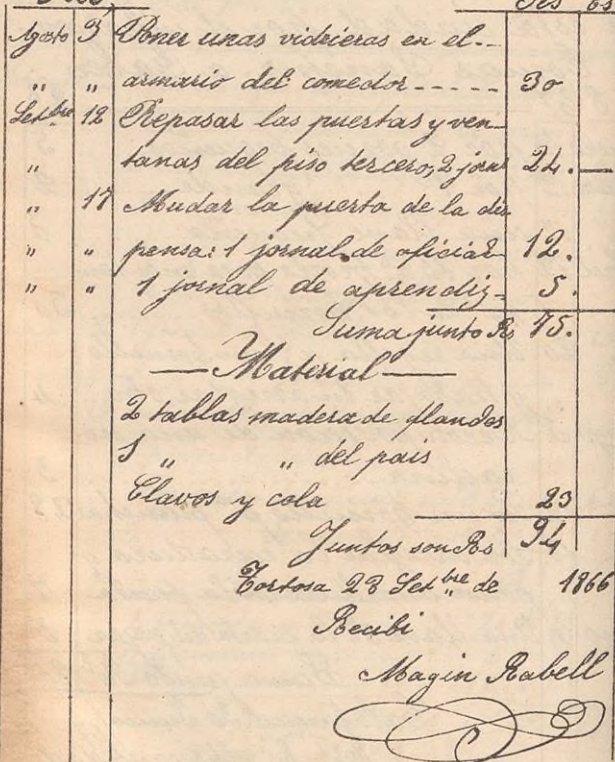 Agosto 3 Poner unas vidrieras en el..
" " armario del comedor ----- 30
Setbre 12 Repasar las puertas y ven-
" tanas del piso tercero, 2 jorns 24. —
" 17 Mudar la puerta de la dis
" " pensa: 1 jornal de oficial - 12.
" " 1 jornal de aprendiz - 5.
Suma junto Rs 71.
— Material —
2 tablas madera de flandes
1 " " del pais
Clavos y cola 23
Juntos son Rs 94
Tortosa 28 Setbre de 1866
Recibi
Magin Rabell